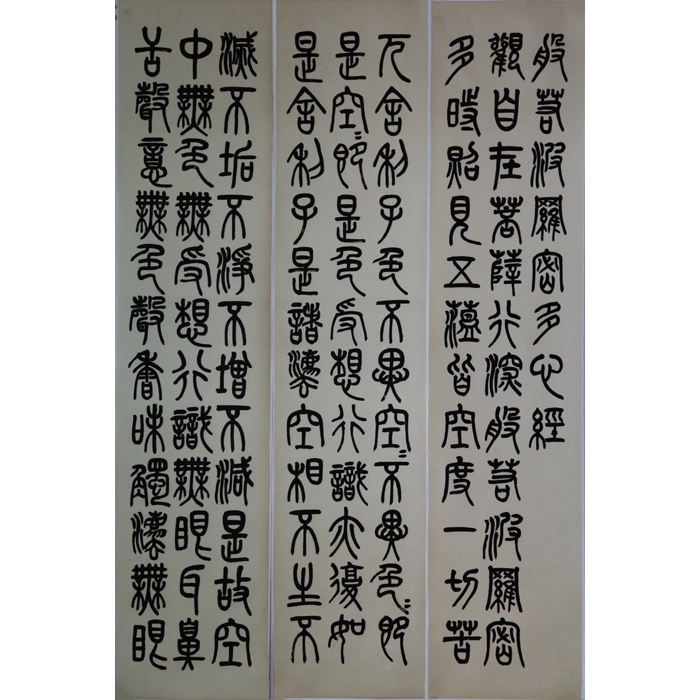 般若波羅密多心經
觀自在菩薩行深般若波羅密
多時照見五蘊皆空度一切苦
厄舍利子色不異空〻不異色〻即
是空〻即是色受想行識亦復如
是舍利子是諸灋空相不生不
滅不垢不淨不增不減是故空
中無色無受想行識無眼耳鼻
舌聲意無色聲香味觸灋無眼